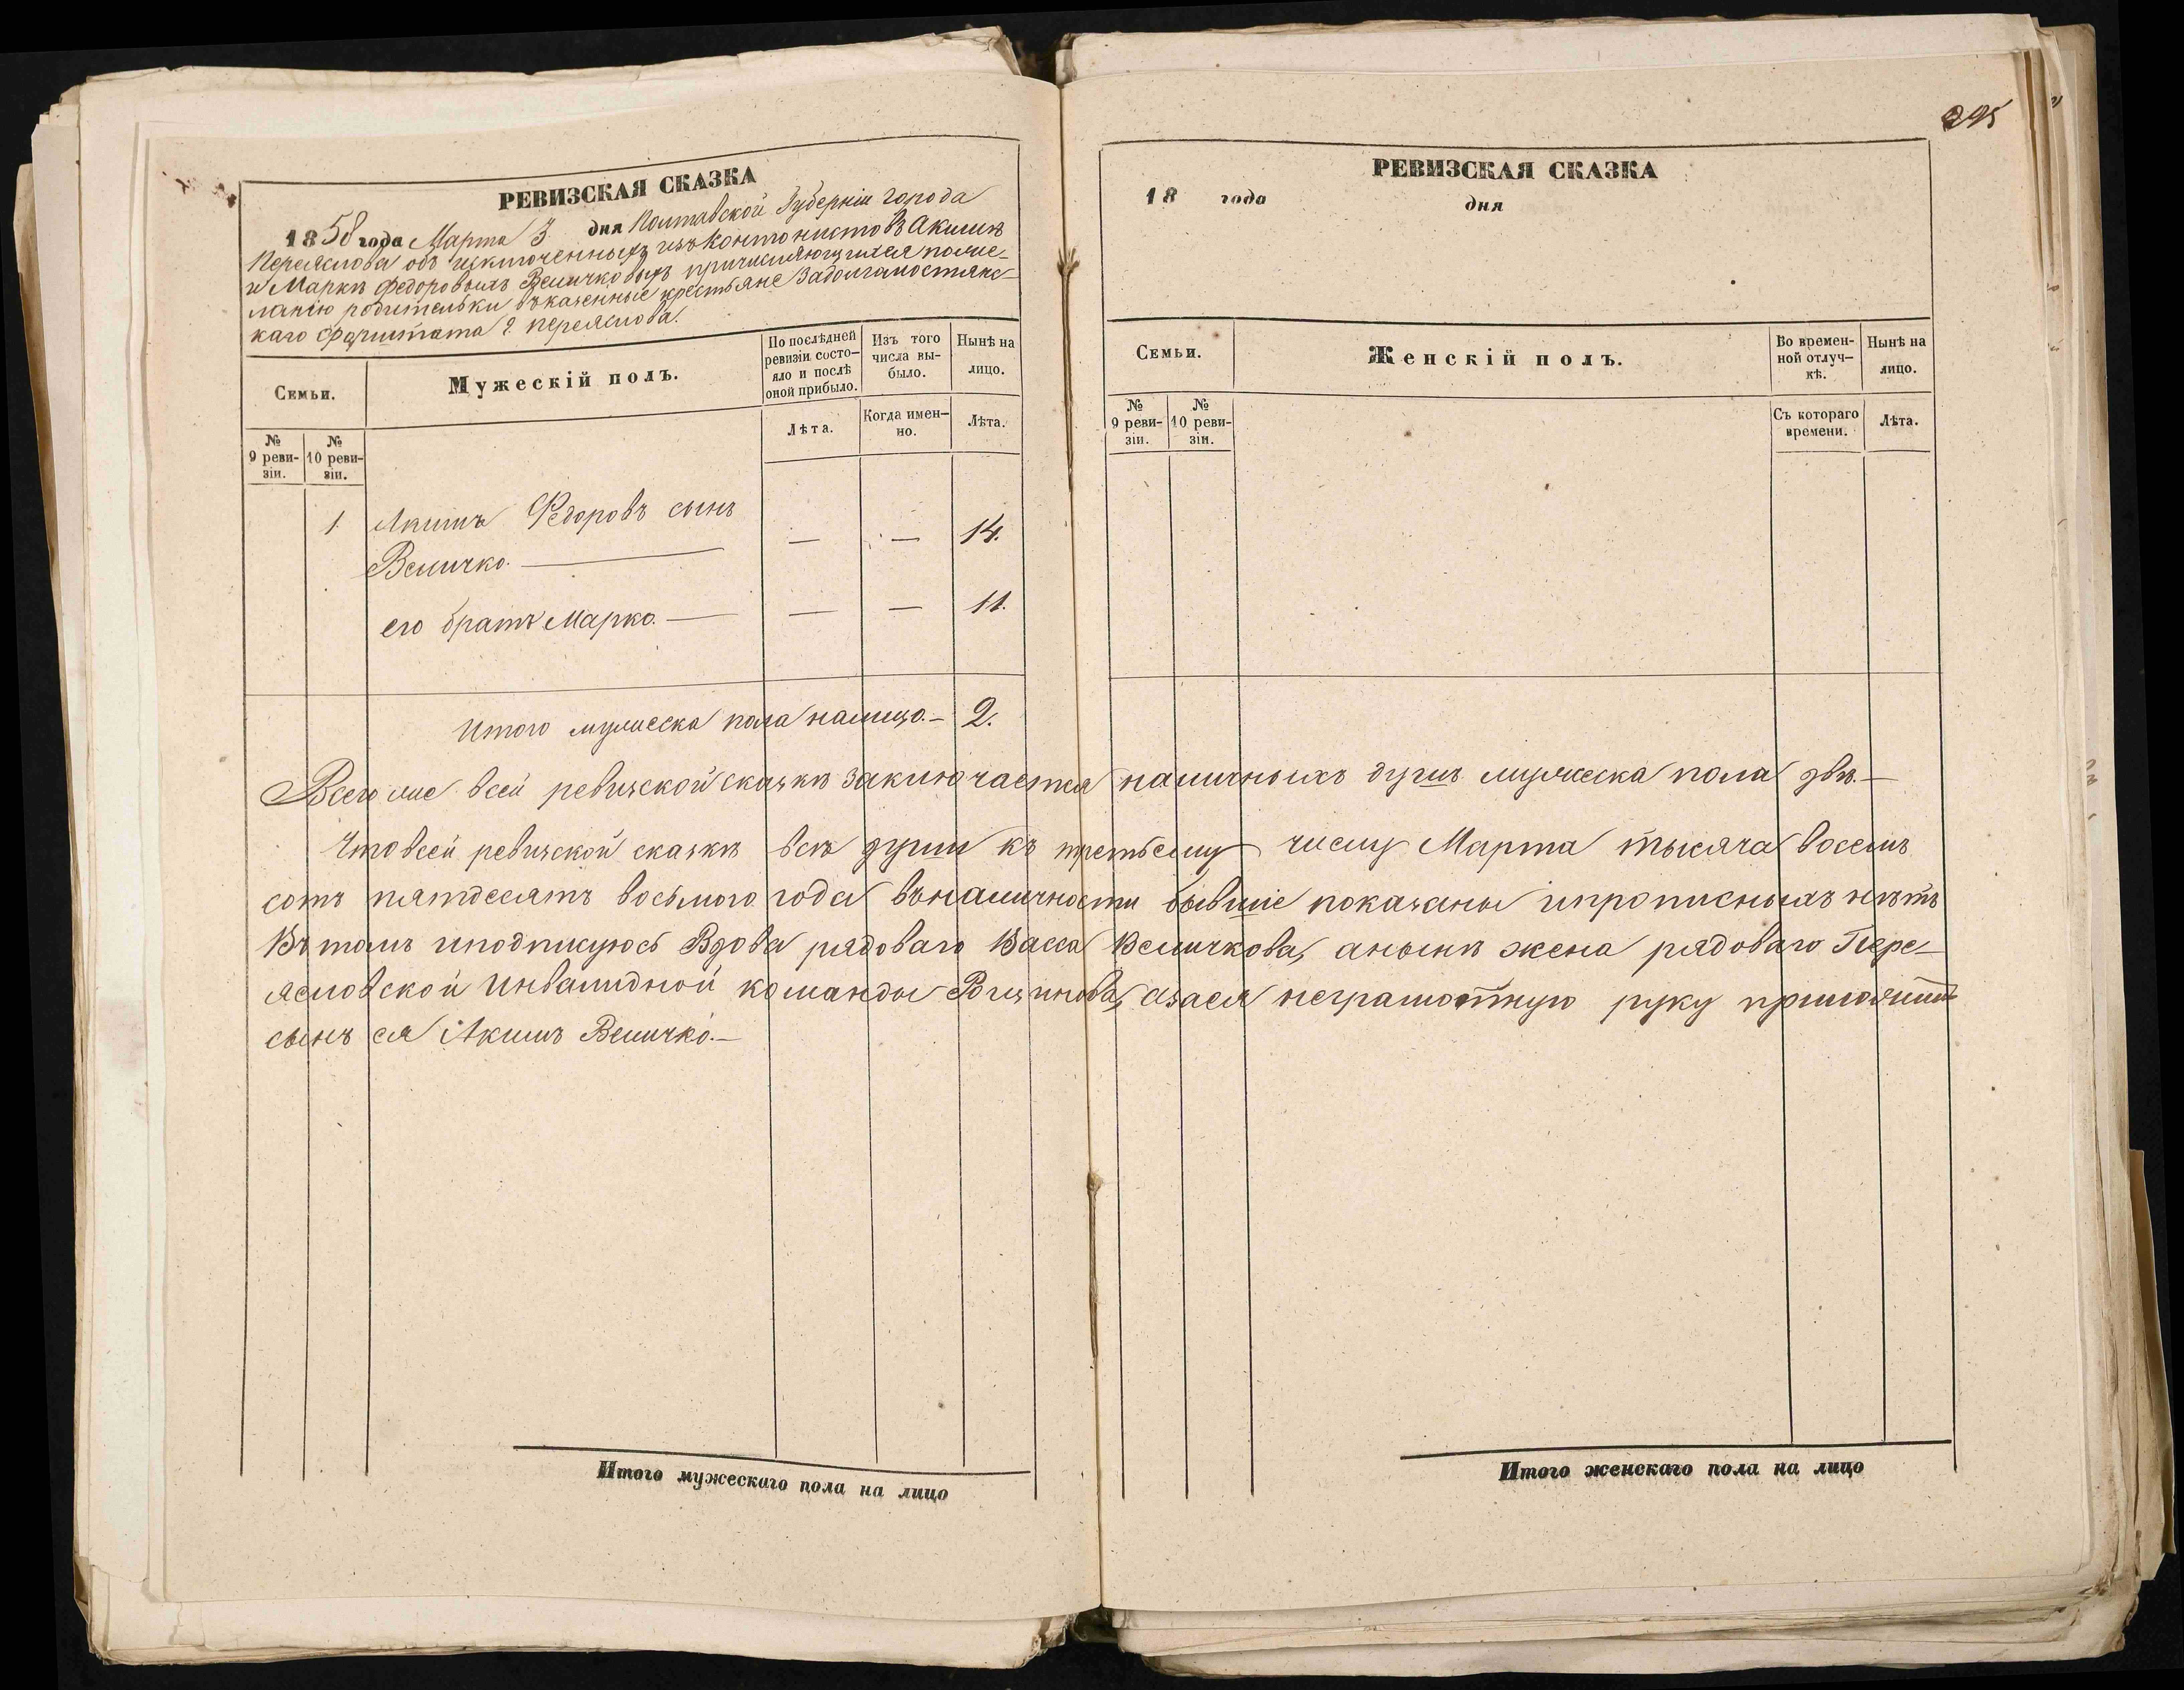 295
РЕВИЗСКАЯ СКАЗКА
1858 года Марта 3 дня Полтавской Губерніи города
Переяслова объ изключенныхъ изъ Контонистовъ Акимѣ
и Маркѣ Федоровыхъ Величковыхъ причисляющихся поже-
ланію родительки въказенные крестьяне Задолгамостянс-
каго форштата г. переяслова.
Семьи.
Мужескій полъ.
По послѣдней ревизіи состо-яло и послѣ оной прибыло.
Изъ того числа вы-было.
Нынѣ на лицо.
№ 9 реви-зіи.
№ 10 реви-зіи.
Лѣта.
Когда имен-но.
Лѣта.
1. Акимъ Федоровъ сынъ
Величко. — — — 14.
его братъ Марко. — — — 11.
Итого мужеска пола налицо. — 2.
РЕВИЗСКАЯ СКАЗКА
18 года дня
Семьи.
Женскій полъ.
Во времен-ной отлуч-кѣ.
Нынѣ на лицо.
№ 9 реви-зіи.
№ 10 реви-зіи.
Съ котораго времени.
Лѣта.
Всего же всей ревизской сказкѣ заключается наличныхъ душъ мужеска пола двѣ. —
Что всей ревизской сказкѣ всѣ души къ третьему числу Марта тысяча восемь
сотъ пятдесятъ восьмого года въналичности бывшіе показаны ипрописныхъ нѣтъ
Въ томъ иподписуюсь Вдова рядоваго Васса Величкова, анынѣ жена рядоваго Пере-
ясловской Инвалидной команды азаея неграмотную руку приложилъ
сынъ ея Акимъ Величко. —
Итого мужескаго пола на лицо
Итого женскаго пола на лицо